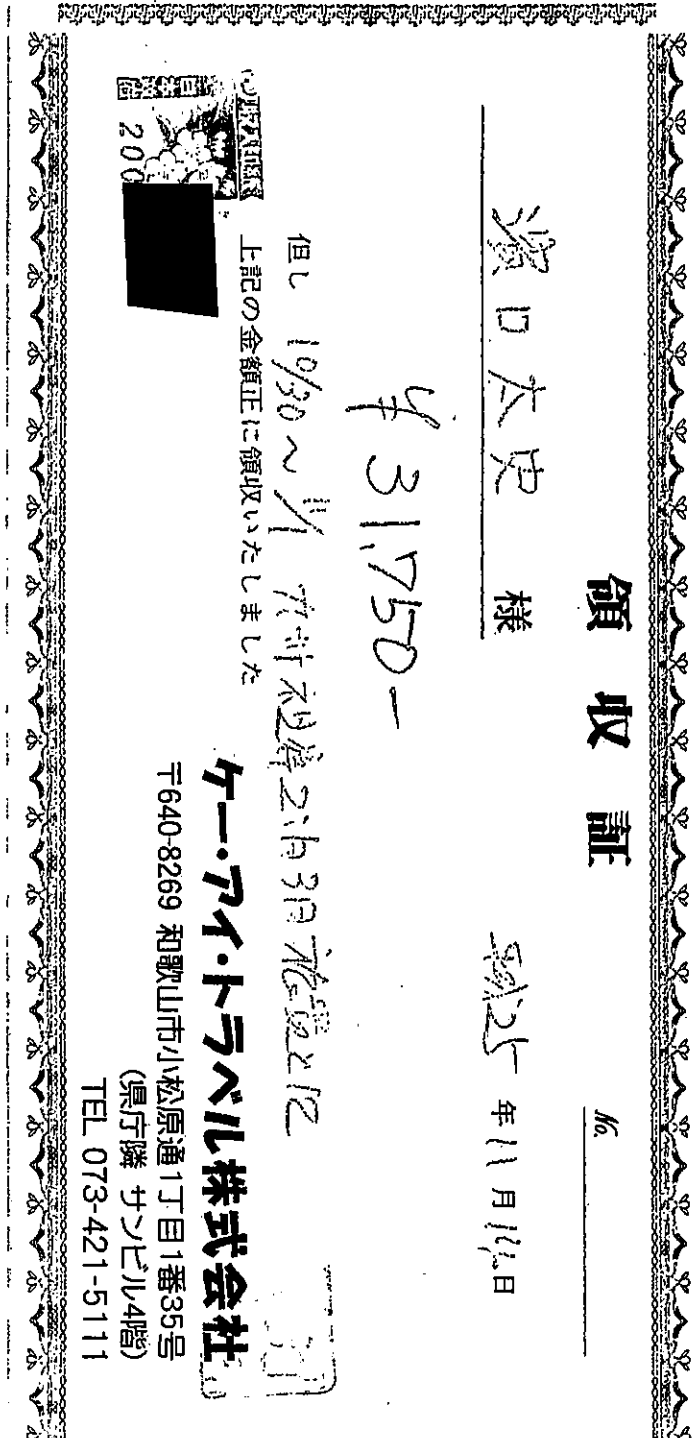 領収証
No.
濱口太史 様
平成25年11月 日
¥31,750-
但し 10/30~11/1 2泊3日 として
上記の金額正に領収いたしました
200
ケー・アイ・トラベル株式会社
〒640-8269 和歌山市小松原通1丁目1番35号
(県庁隣 サンビル4階)
TEL 073-421-5111